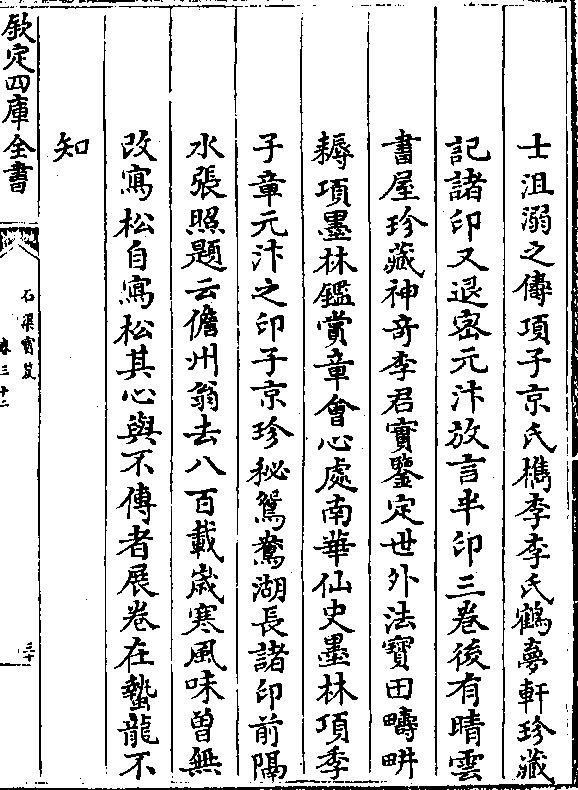 士沮溺之儔項子京氏檇李李氏鶴夢軒珍藏
記諸印又退密元汴放言半印三卷後有晴雲
書屋珍藏神奇季君實鑒定世外法寶田疇畊
耨項墨林鑑賞章會心處南華仙史墨林項季
子章元汴之印子京珍秘鴛鴦湖長諸印前隔
水張照題云儋州翁去八百載歲寒風味曾無
改寫松自寫松其心與不傳者展卷在蟄龍不
知
欽定四庫全書
石渠寶笈
卷三十二
三十